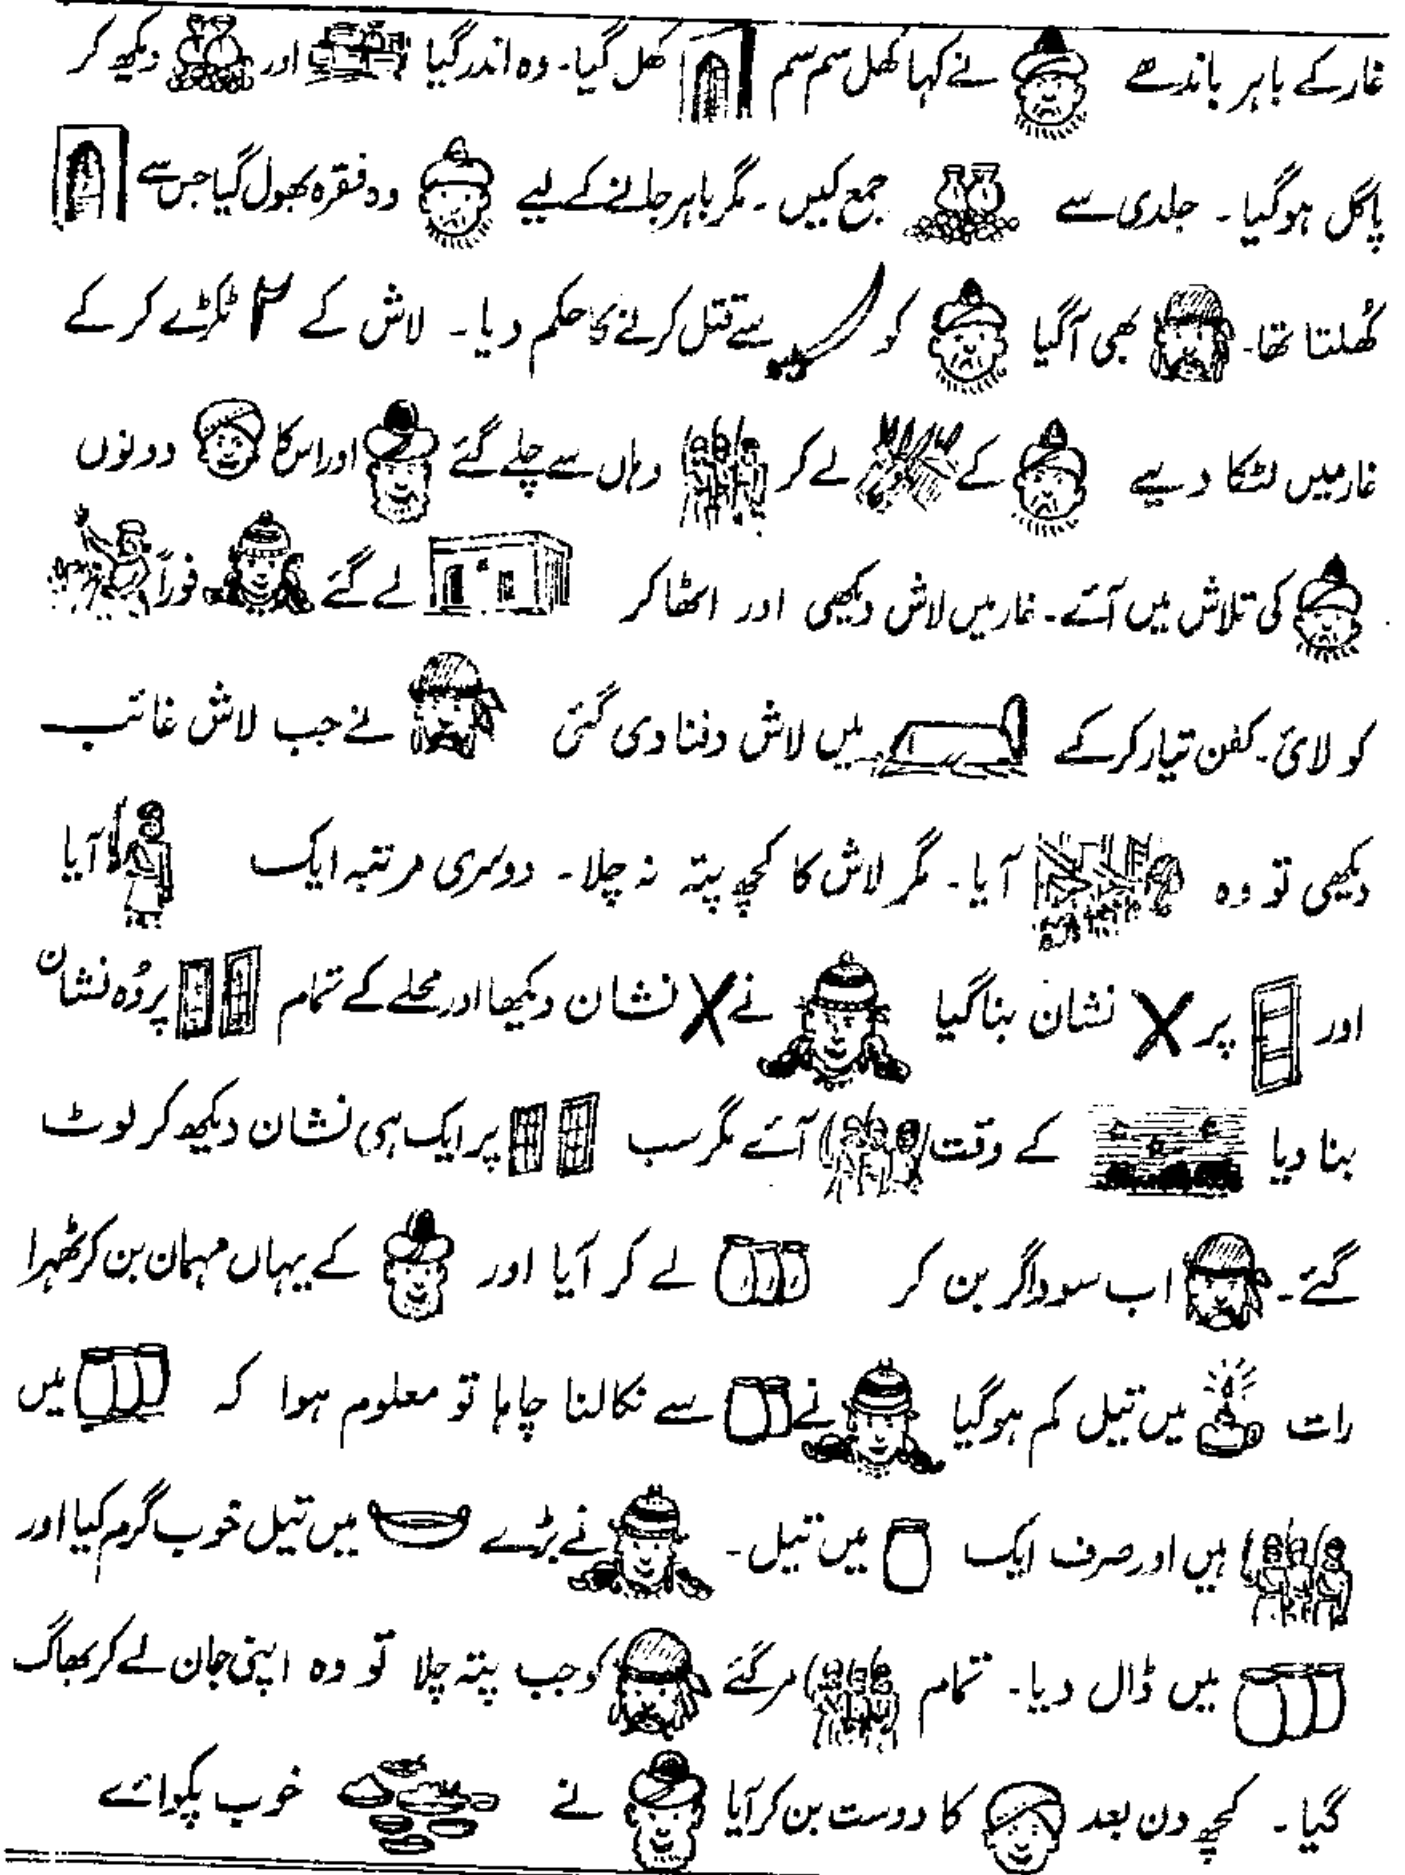 غار کے باہر باندھے نے کہا کھل سم سم کھل گیا۔ وہ اندر گیا اور دیکھ کر
پاگل ہوگیا۔ جلدی سے جمع کیں۔ مگر باہر جانے کے لیے وہ فقرہ بھول گیا جس سے
کُھلتا تھا۔ بھی آگیا کو سے قتل کرنے کا حکم دیا۔ لاش کے ۲ ٹکڑے کرکے
غار میں لٹکا دیے کے لے کر وہاں سے چلے گئے اور اس کا دونوں
کی تلاش میں آئے۔ غار میں لاش دیکھی اور اٹھا کر لے گئے فوراً
کو لائی۔ کفن تیار کرکے میں لاش دفنا دی گئی نے جب لاش غائب
دیکھی تو وہ آیا۔ مگر لاش کا کچھ پتہ نہ چلا۔ دوسری مرتبہ ایک آیا
اور پر X نشان بنا گیا نے X نشان دیکھا اور محلے کے تمام پر وُہ نشان
بنا دیا کے وقت آئے مگر سب پر ایک ہی نشان دیکھ کر لوٹ
گئے۔ اب سوداگر بن کر لے کر آیا اور کے یہاں مہمان بن کر ٹھہرا
رات میں تیل کم ہوگیا نے سے نکالنا چاہا تو معلوم ہوا کہ میں
ہیں اور صرف ایک میں تیل۔ نے بڑے میں تیل خوب گرم کیا اور
میں ڈال دیا۔ تمام مر گئے کو جب پتہ چلا تو وہ اپنی جان لے کر بھاگ
گیا۔ کچھ دن بعد کا دوست بن کر آیا نے خوب پکوائے